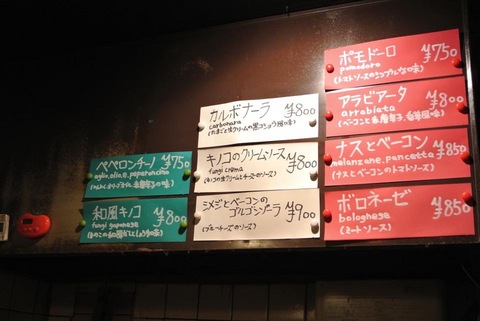 ペペロンチーノ ¥750
aglio, olio, e, peperoncino
和風キノコ ¥800
funghi giapponese
カルボナーラ ¥800
carbonara
(たまごと生クリームの黒コショウ風味)
キノコのクリームソース ¥800
fungi crema
(キノコの生クリームとチーズのソース)
シメジとベーコンの
ゴルゴンゾーラ ¥900
(ブルーチーズのソース)
ポモドーロ ¥750
pomodoro
(トマトソースのシンプルな味)
アラビアータ ¥800
arrabiata
(ベーコンと唐辛子、白葱風味)
ナスとベーコン ¥850
melanzane, pancetta
(ナスとベーコンのトマトソース)
ボロネーゼ ¥850
bolognese
(ミートソース)